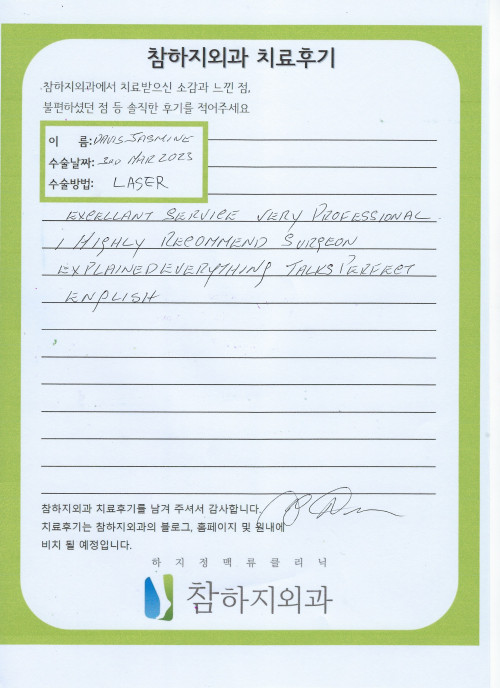 참하지외과 치료후기
참하지외과에서 치료받으신 소감과 느낀 점,
불편하셨던 점 등 솔직한 후기를 적어주세요
이 름: DAVIS JASMINE
수술날짜: 3RD MAR 2023
수술방법: LASER
EXPELLANT SERVICE VERY PROFESSIONAL.
I HIGHLY RECOMMEND SURGEON
EXPLAINED EVERYTHING TALKS PERFECT
ENGLISH
참하지외과 치료후기를 남겨 주셔서 감사합니다.
치료후기는 참하지외과의 블로그, 홈페이지 및 원내에
비치 될 예정입니다.
하지정맥류클리닉
참하지외과